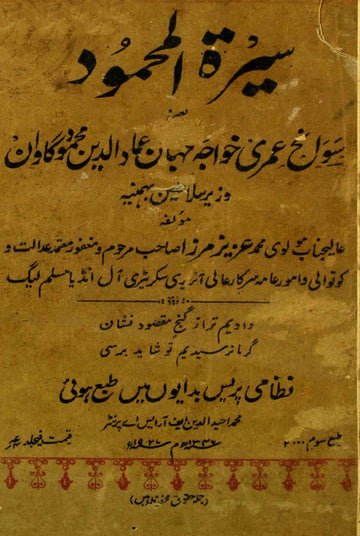 سیرۃ المحمود
یعنے
سوانح عمری خواجہ جہان عماد الدین محمود گاوان
وزیر سلاطین بہمنیہ
مؤلفہ
عالیجناب مولوی محمد عزیز مرزا صاحب مرحوم و مغفور معتمد عدالت و
کوتوالی و امور عامہ سرکار عالی آنریری سکرٹری آل انڈیا مسلم لیگ
دادیم ترا ز گنج مقصود نشان
گر ما نرسیدیم تو شاید برسی
نظامی پریس بدایوں میں طبع ہوئی
محمد احید الدین ایف آر ایس اے پرنٹر
طبع سوم ۲۰۰۰ ۱۳۴۶ھ م ۱۹۲۷ء قیمت فیجلد عہ
(جملہ حقوق محفوظ ہیں)